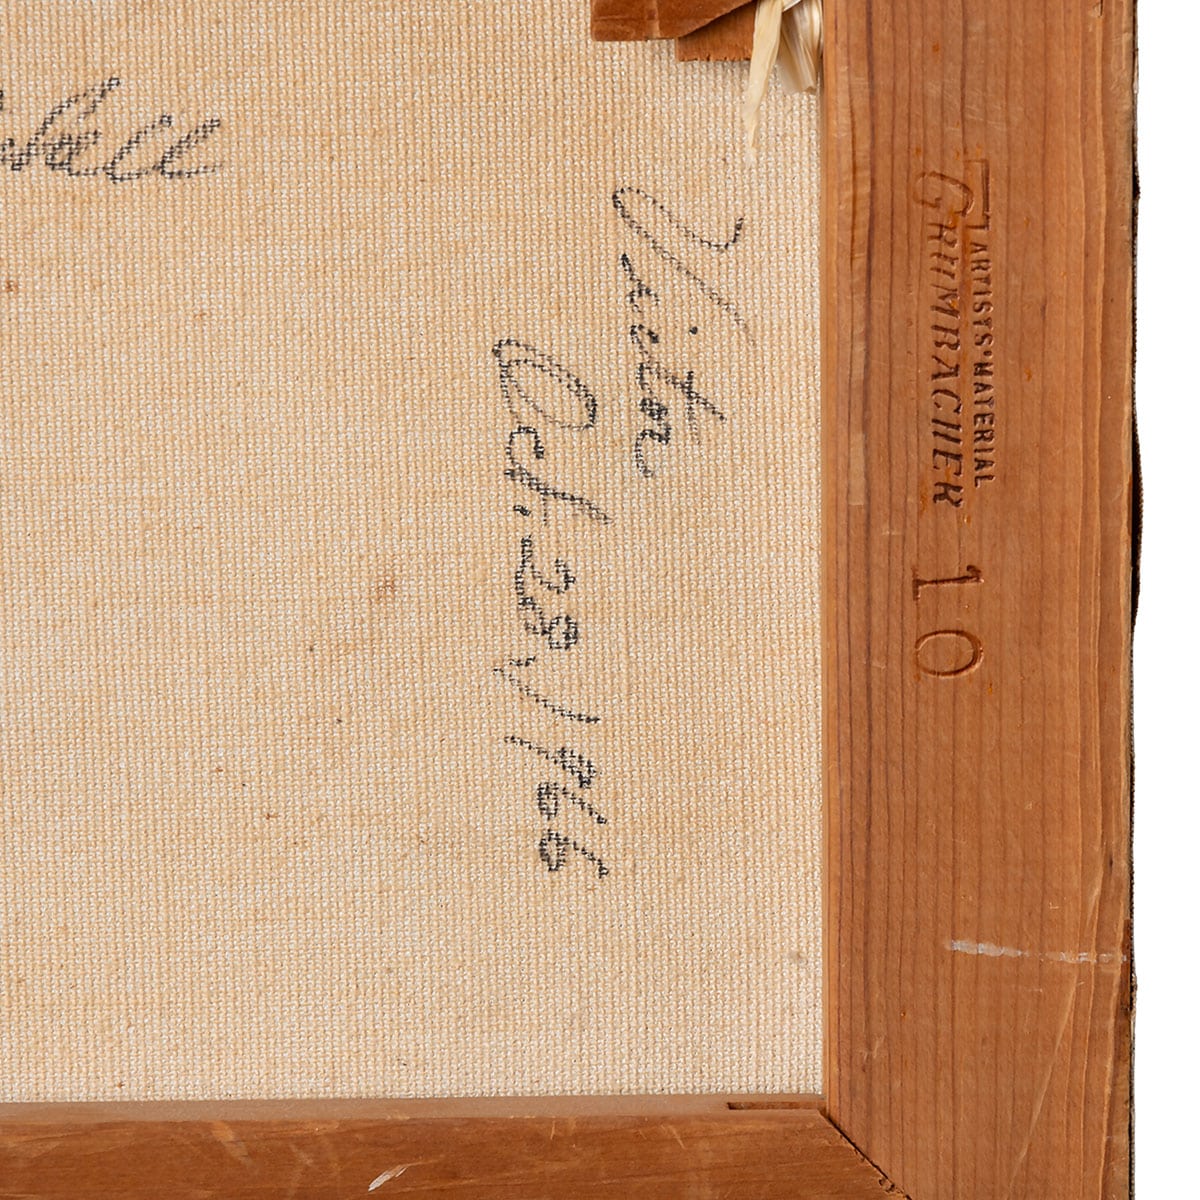 Victor
Oct. 30/1966
ARTISTS' MATERIAL
GRUMBACHER
10